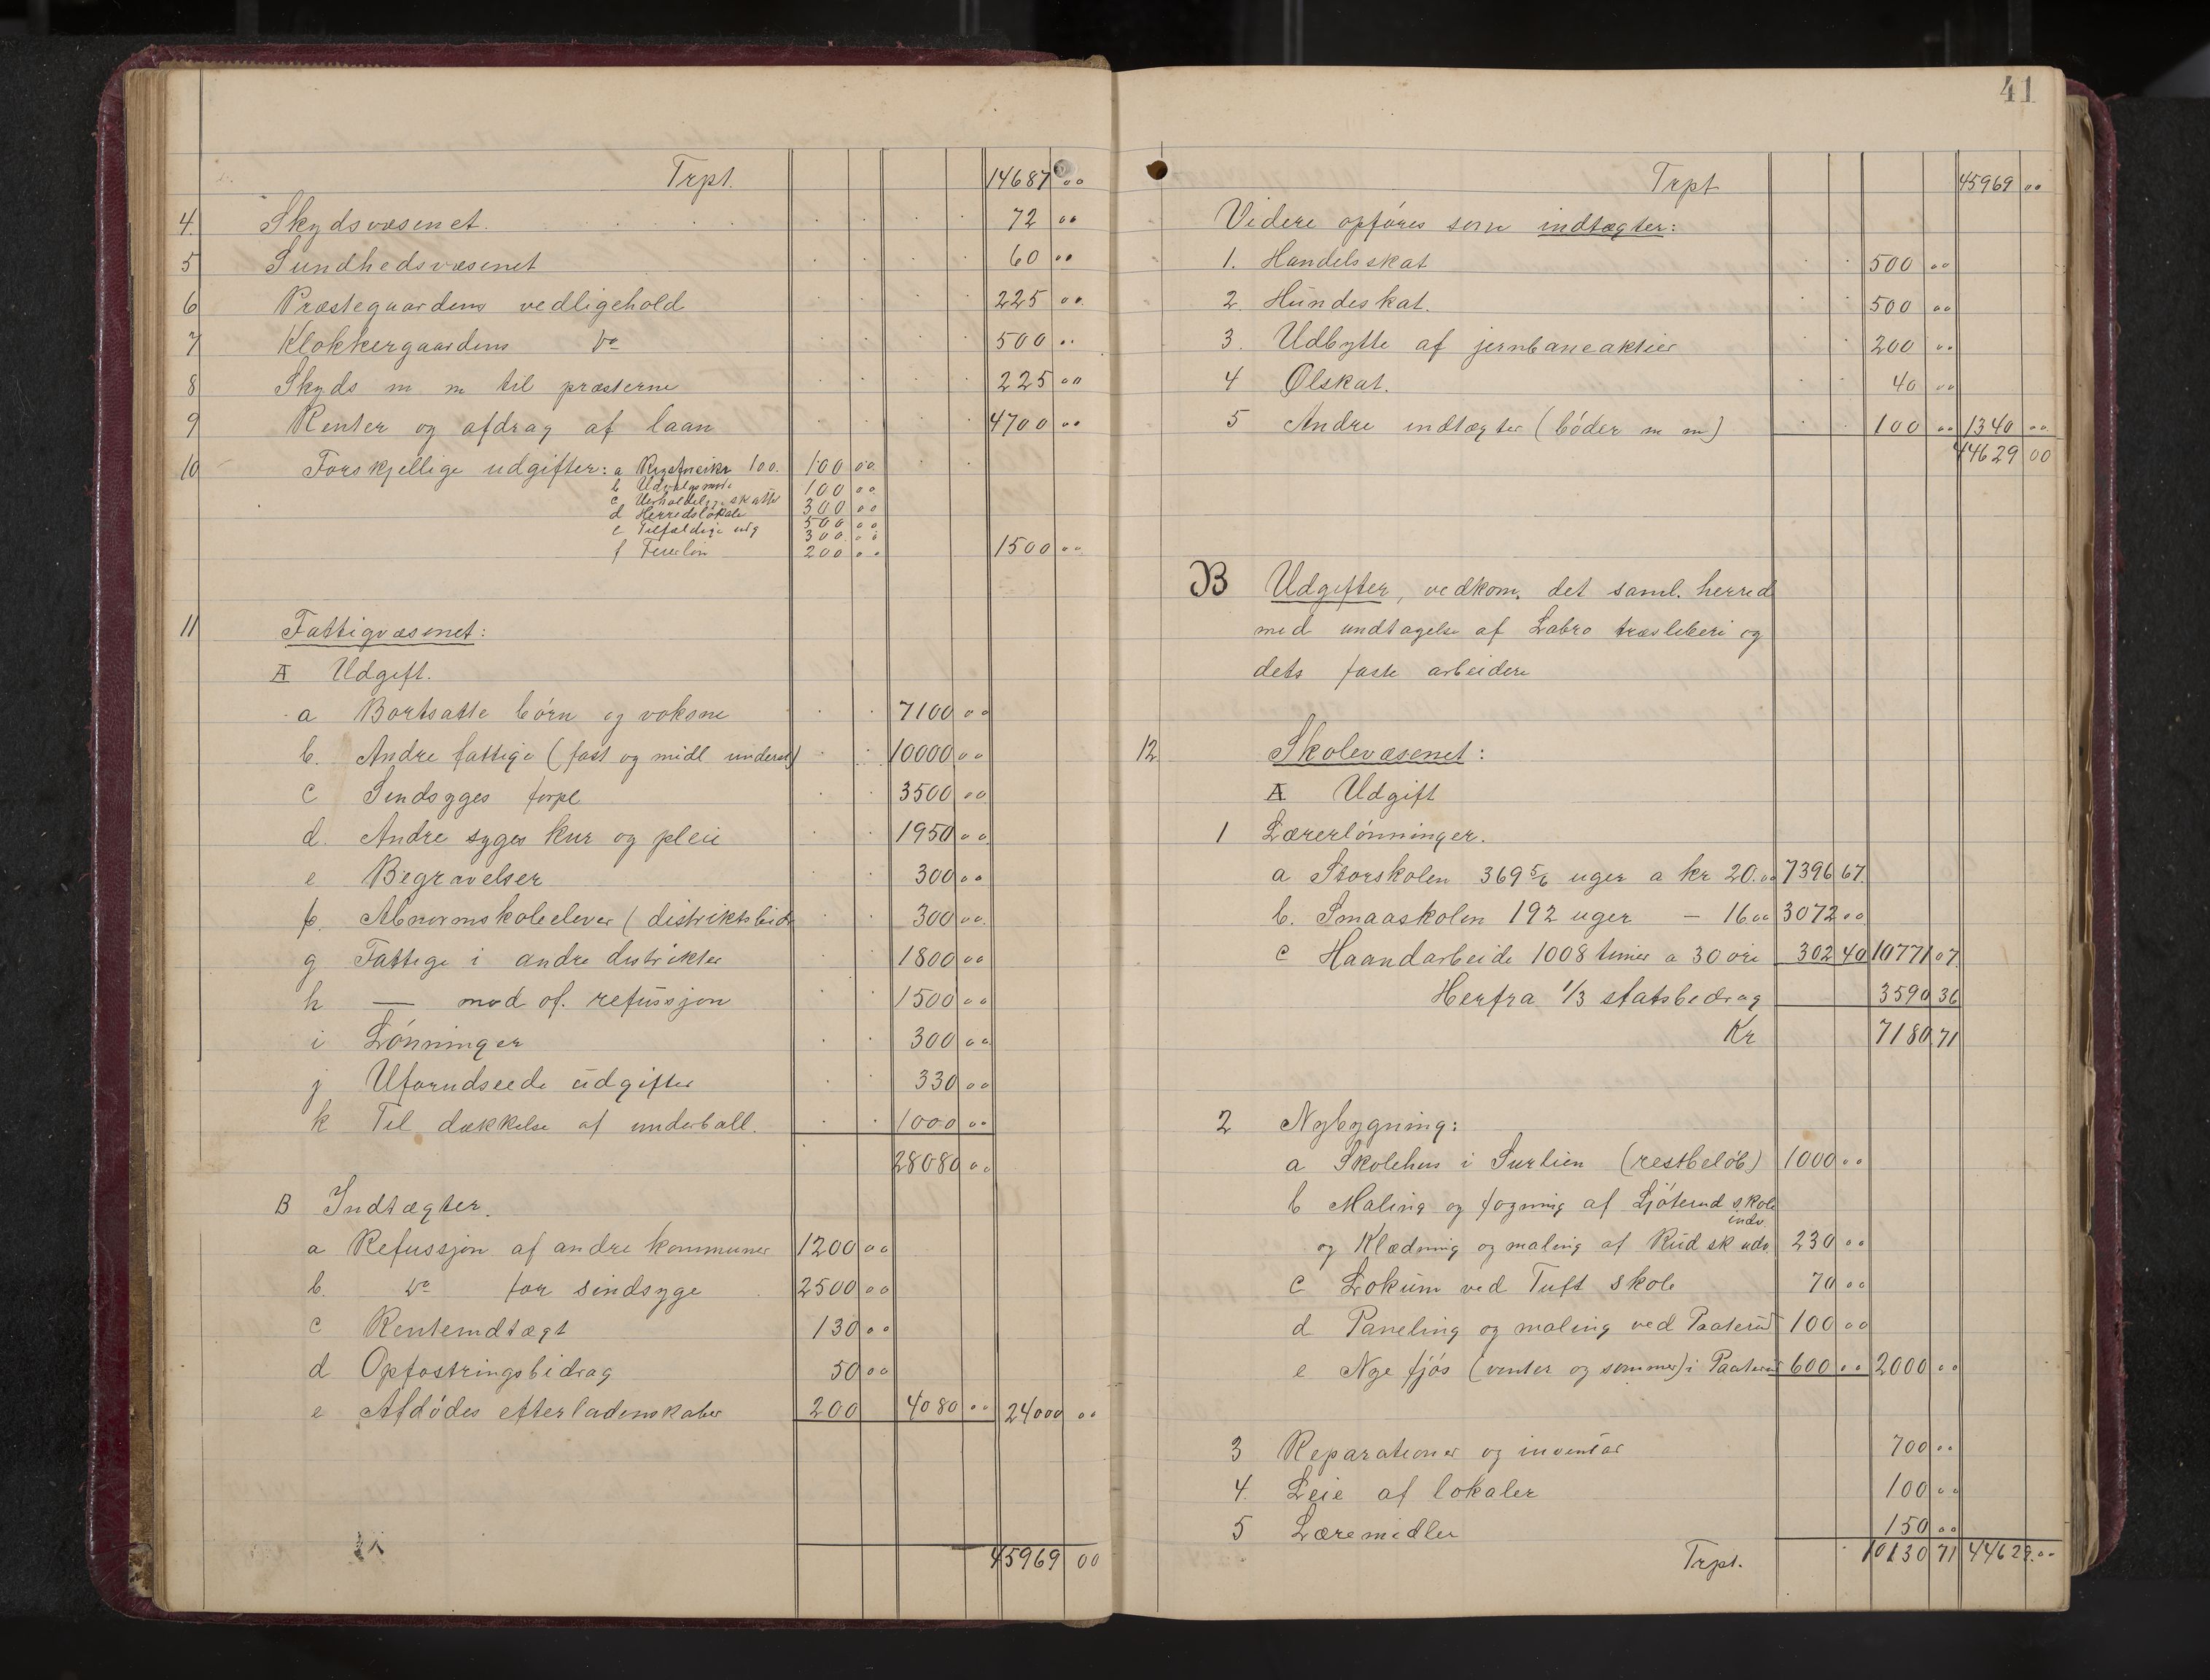 Trpt. 14687 00
4. Skydsvæsenet. 72 00
5 Sundhedsvæsenet 60 00
6 Præstegaardens vedligehold 225 00
7 Klokkergaardens do 500 00
8 Skyds m m til præsterne 225 00
9 Renter og afdrag af laan 4700 00
10 Forskjellige udgifter: a 100. 100 00
b 100 00
c skatte 300 00
d Herredslokale 500 00
e Tilfældige udg 300 00
f 200 00 1500 00
11 Fattigvæsenet:
A Udgift.
a Bortsatte børn og voksne 7100 00
b. Andre fattige (fast og midl underst) 10000 00
c Sindsyges forpl 3500 00
d. Andre syges kur og pleie 1950 00
e Begravelser 300 00
f. Abnormskoleelever (distriktsbidr 300 00
g Fattige i andre distrikter 1800 00
h — mod of. refussjon 1500 00
i Lønninger 300 00
j Uforudseede udgifter 330 00
k Til dækkelse af underball. 1000 00
28080 00
B Indtægter.
a Refussjon af andre kommuner 1200 00
b. do for sindsyge 2500 00
c Renteindtægt 130 00
d Opfostringsbidrag 50 00
e Afdødes efterladenskaber 200 4080 00 24000 00
45969 00
41
Trpt 45969 00
Videre opføres som indtægter:
1. Handelsskat 500 00
2. Hundeskat. 500 00
3. Udbytte af jernbaneaktier 200 00
4 Ølskat. 40 00
5 Andre indtægter (bøder m m) 100 00 1340 00
44629 00
B Udgifter, vedkom. det saml. herred
med undtagelse af Labro træsliberi og
dets faste arbeidere
12 Skolevæsenet:
A Udgift
1 Lærerlønninger.
a Storskolen 369 5/6 uger a kr 20.00 7396 67.
b. Smaaskolen 192 uger — 16 00 3072 00
c Haandarbeide 1008 timer a 30 øre 302 40 10771 07
Herfra 1/3 statsbedrag 3590 36
Kr 7180 71
2 Nybygning:
a Skolehus i Surlien (restbeløb) 1000 00
b Maling og af Ljøterud skole
indv.
og Klædning og maling af Rud sk udv. 230 00
c Lokum ved Tuft skole 70 00
d Paneling og maling ved Paaterud 100 00
e Nye fjøs (venter og sommer) i Paaterud 600 00 2000 00
3 Reparationer og inventar 700 00
4. Leie af lokaler 100 00
5 Læremidler 150 00
Trpt. 10130 71 44629.00